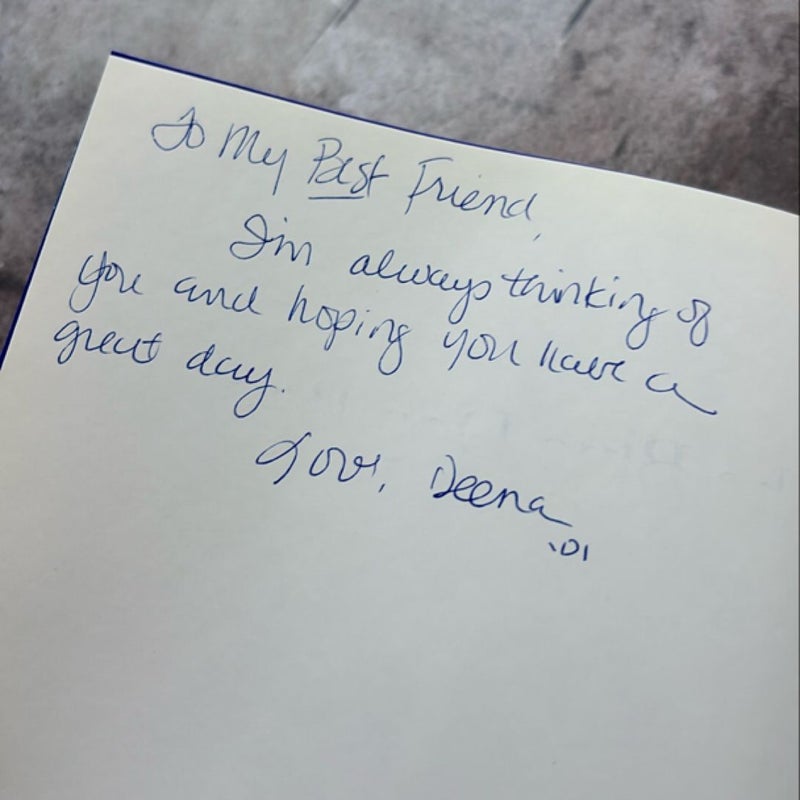 To My Best Friend,
I'm always thinking of
you and hoping you have a
great day.
Love, Deena
'01